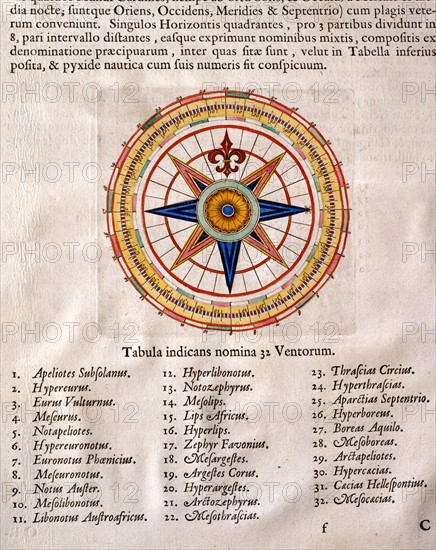 dia nocte; ſuntque Oriens, Occidens, Meridies & Septentrio) cum plagis vete-
rum convenient. Singulos Horizontis quadrantes, pro 3 partibus dividunt in
8, pari intervallo diſtantes, eaſque exprimunt nominibus mixtis, compoſitis ex
denominatione præcipuarum, inter quas ſitæ ſunt, velut in Tabella inferius
poſita, & pyxide nautica cum ſuis numeris fit conſpicuum.
Tabula indicans nomina 32 Ventorum.
1. Apeliotes Subſolanus.
2. Hypereurus.
3. Eurus Vulturnus.
4. Meſeurus.
5. Notapeliotes.
6. Hypereuronotus.
7. Euronotus Phœnicius.
8. Meſeuronotus.
9. Notus Auſter.
10. Meſolibonotus.
11. Libonotus Auſtroafricus.
12. Hyperlibonotus.
13. Notozephyrus.
14. Meſolips.
15. Lips Africus.
16. Hyperlips.
17. Zephyr Favonius.
18. Meſargeſtes.
19. Argeſtes Corus.
20. Hyperargeſtes.
21. Arctozephyrus.
22. Meſothraſcias.
23. Thraſcias Circius.
24. Hyperthraſcias.
25. Aparctias Septentrio.
26. Hyperboreus.
27. Boreas Aquilo.
28. Meſoboreas.
29. Arctapeliotes.
30. Hypercæcias.
31. Cæcias Helleſpontius.
32. Meſocæcias.
f C
PHOTO12